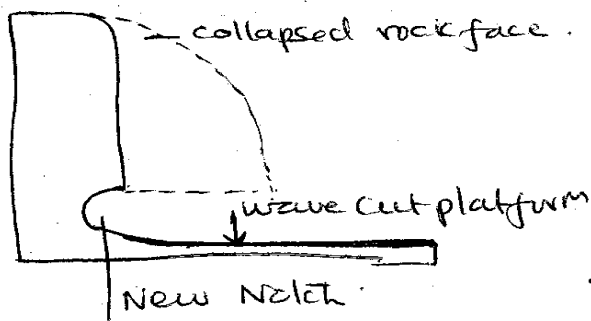 collapsed rock face.
wave cut platform
New Notch.